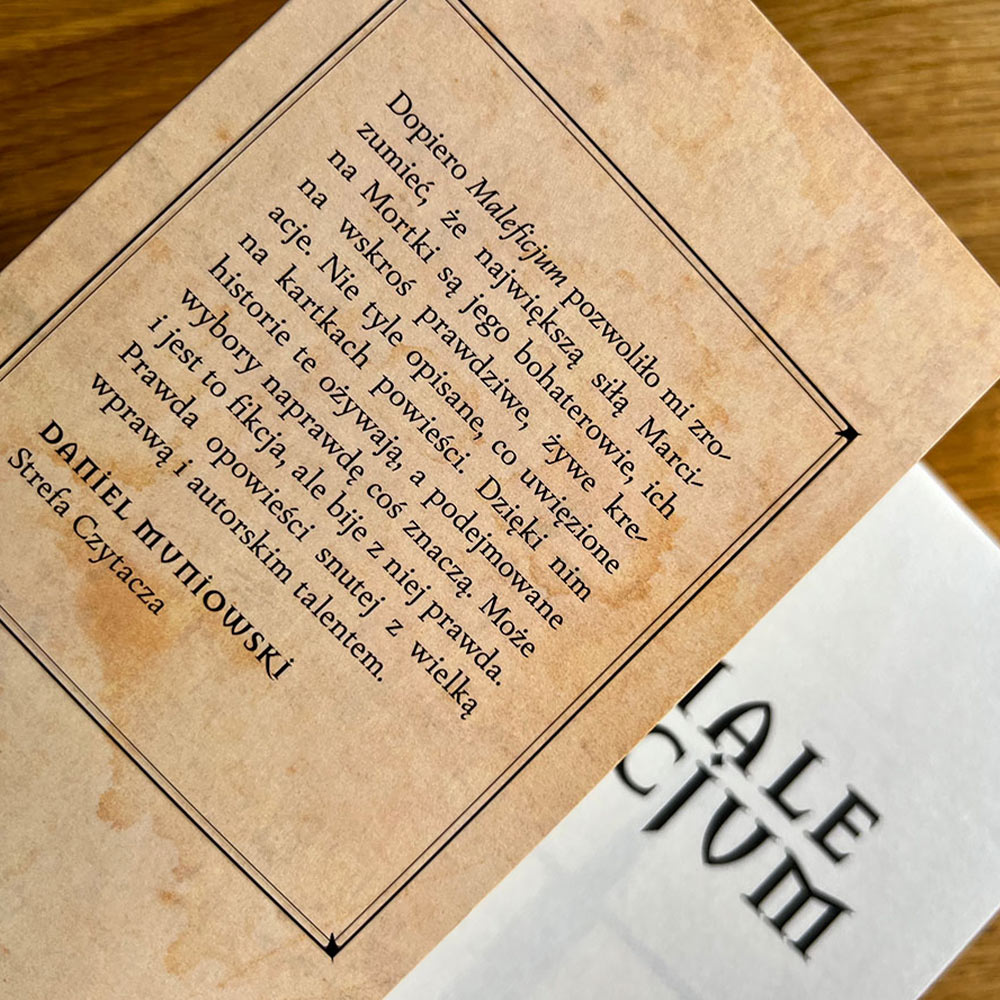 Dopiero Maleficjum pozwoliło mi zro-
zumieć, że największą siłą Marci-
na Mortki są jego bohaterowie, ich
na wskroś prawdziwe, żywe kre-
acje. Nie tyle opisane, co uwięzione
na kartkach powieści. Dzięki nim
historie te ożywają, a podejmowane
wybory naprawdę coś znaczą. Może
i jest to fikcja, ale bije z niej prawda.
Prawda opowieści snutej z wielką
wprawą i autorskim talentem.
DANIEL MUNIOWSKI
Strefa Czytacza
MALE
CJUM